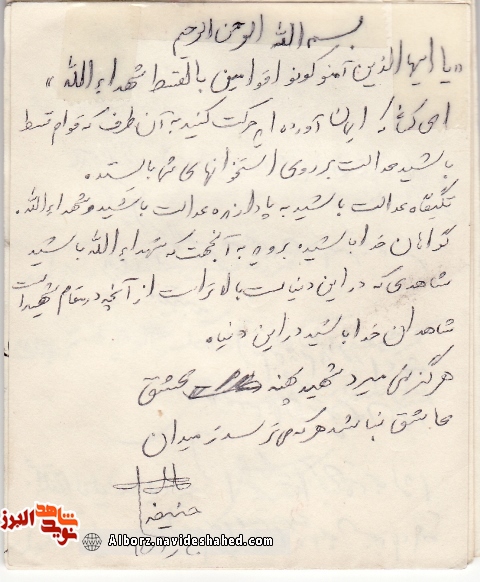 بسم الله الرحمن الرحیم
«یا ایها الذین آمنو کونو اقوامین بالقسط شهداء الله»
ای کسانی که ایمان آورده اید حرکت کنید به آن طرف که قوام قسط
باشید عدالت بر روی استخوانهای شما بایستد.
تکیه‌گاه عدالت باشید به پا دارنده عدالت باشید و شهداء الله.
گواهان خدا باشید، بروید به آنجهت که شهداء الله باشید
شاهدی که در این دنیاست بالاتر است از آنچه در مقام شهید است
شاهدان خدا باشید در این دنیا.
هرگز نمی میرد شهید به عشق
عاشق نباشد هر که می ترسد ز میدان
حنیفه
شاهد
نوید
البرز
Alborz.navideshahed.com